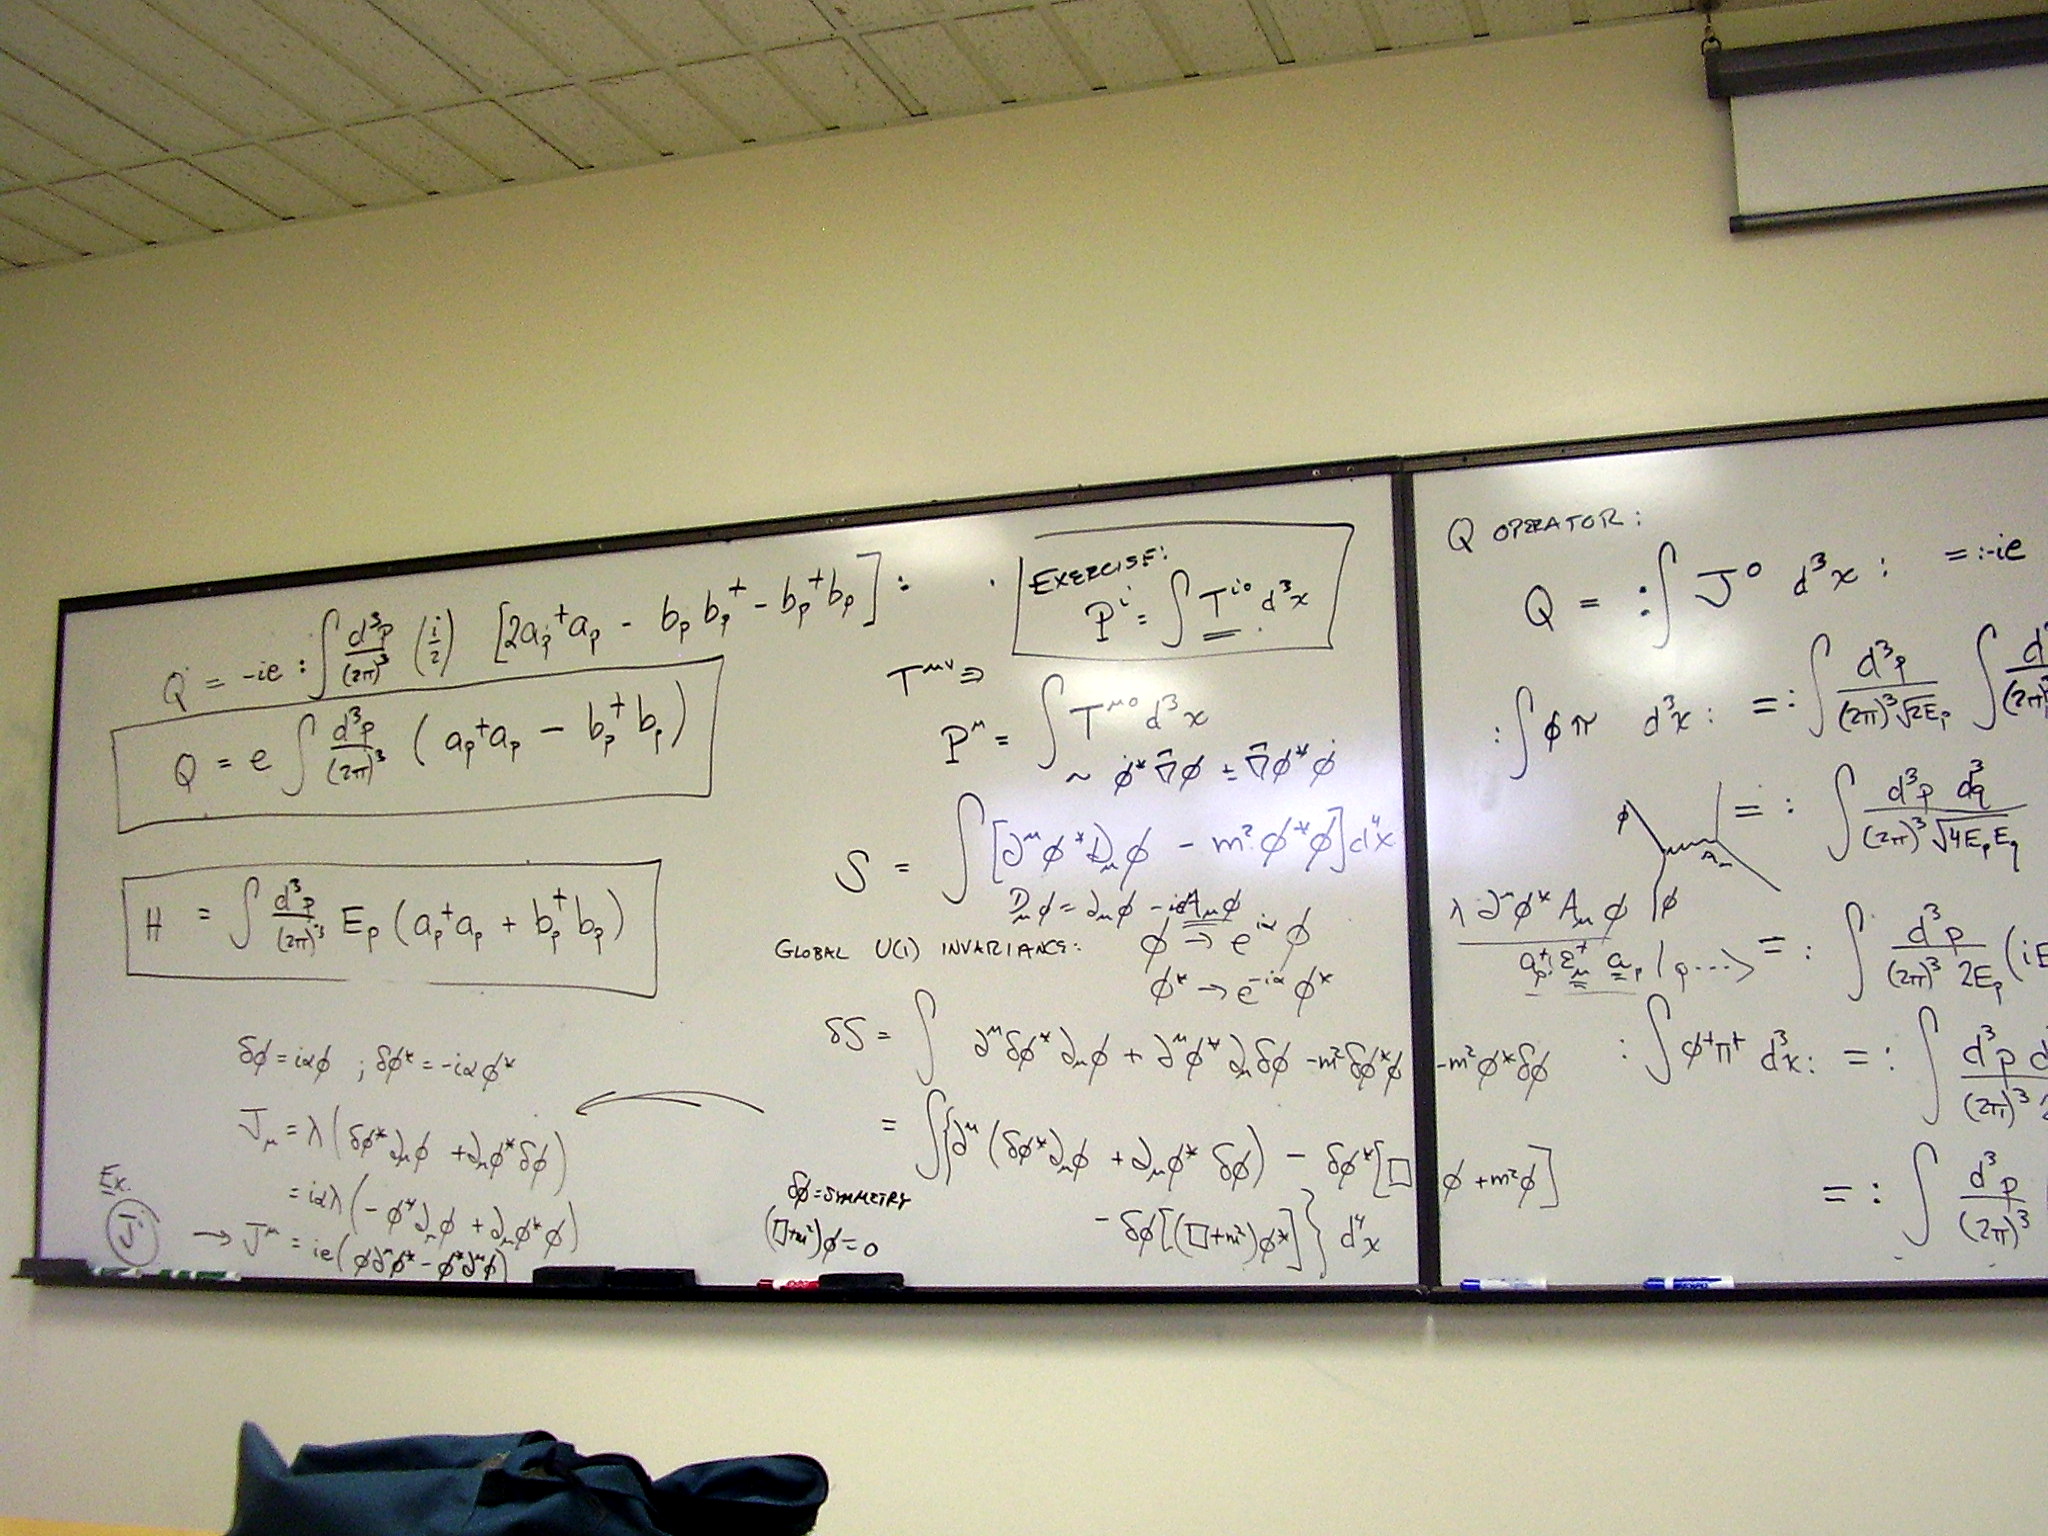 Q = -ie :∫ d³p/(2π)³ (i/2) [2aₚ⁺aₚ - bₚbₚ⁺ - bₚ⁺bₚ] :
Q = e ∫ d³p/(2π)³ (aₚ⁺aₚ - bₚ⁺bₚ)
H = ∫ d³p/(2π)³ Eₚ (aₚ⁺aₚ + bₚ⁺bₚ)
δφ = iαφ ; δφ* = -iαφ*
J_μ = λ(δφ*∂_μφ + ∂_μφ*δφ)
= iαλ(-φ*∂_μφ + ∂_μφ*φ)
→ J^μ = ie(φ∂^μφ* - φ*∂^μφ)
Ex.
Jⁱ
EXERCISE:
Pⁱ = ∫ Tⁱ⁰ d³x
T^μν ⇒
P^μ = ∫ T^μ⁰ d³x
~ φ̇*∇φ ± ∇φ*φ̇
S = ∫ [∂^μφ*D_μφ - m²φ*φ] d⁴x
D_μφ = ∂_μφ - ieA_μφ
GLOBAL U(1) INVARIANCE: φ → e^iα φ
φ* → e^-iα φ*
δS = ∫ ∂^μδφ*∂_μφ + ∂^μφ*∂_μδφ - m²δφ*φ - m²φ*δφ
= ∫{∂^μ(δφ*∂_μφ + ∂_μφ*δφ) - δφ*[□φ + m²φ]
- δφ[(□+m²)φ*]} d⁴x
δφ = SYMMETRY
(□+m²)φ = 0
Q OPERATOR:
Q = :∫ J⁰ d³x : = :-ie
:∫ φπ d³x : = :∫ d³p/(2π)³√2Eₚ ∫
= : ∫ d³p d³q/(2π)³√4EₚE_q
φ
A_μ
φ
λ∂^μφ*A_μφ
aₚ⁺ ε_μ⁺ aₚ | p...>
= : ∫ d³p/(2π)³ 2Eₚ (iE
:∫ φ⁺π⁺ d³x : = : ∫ d³p
= : ∫ d³p/(2π)³